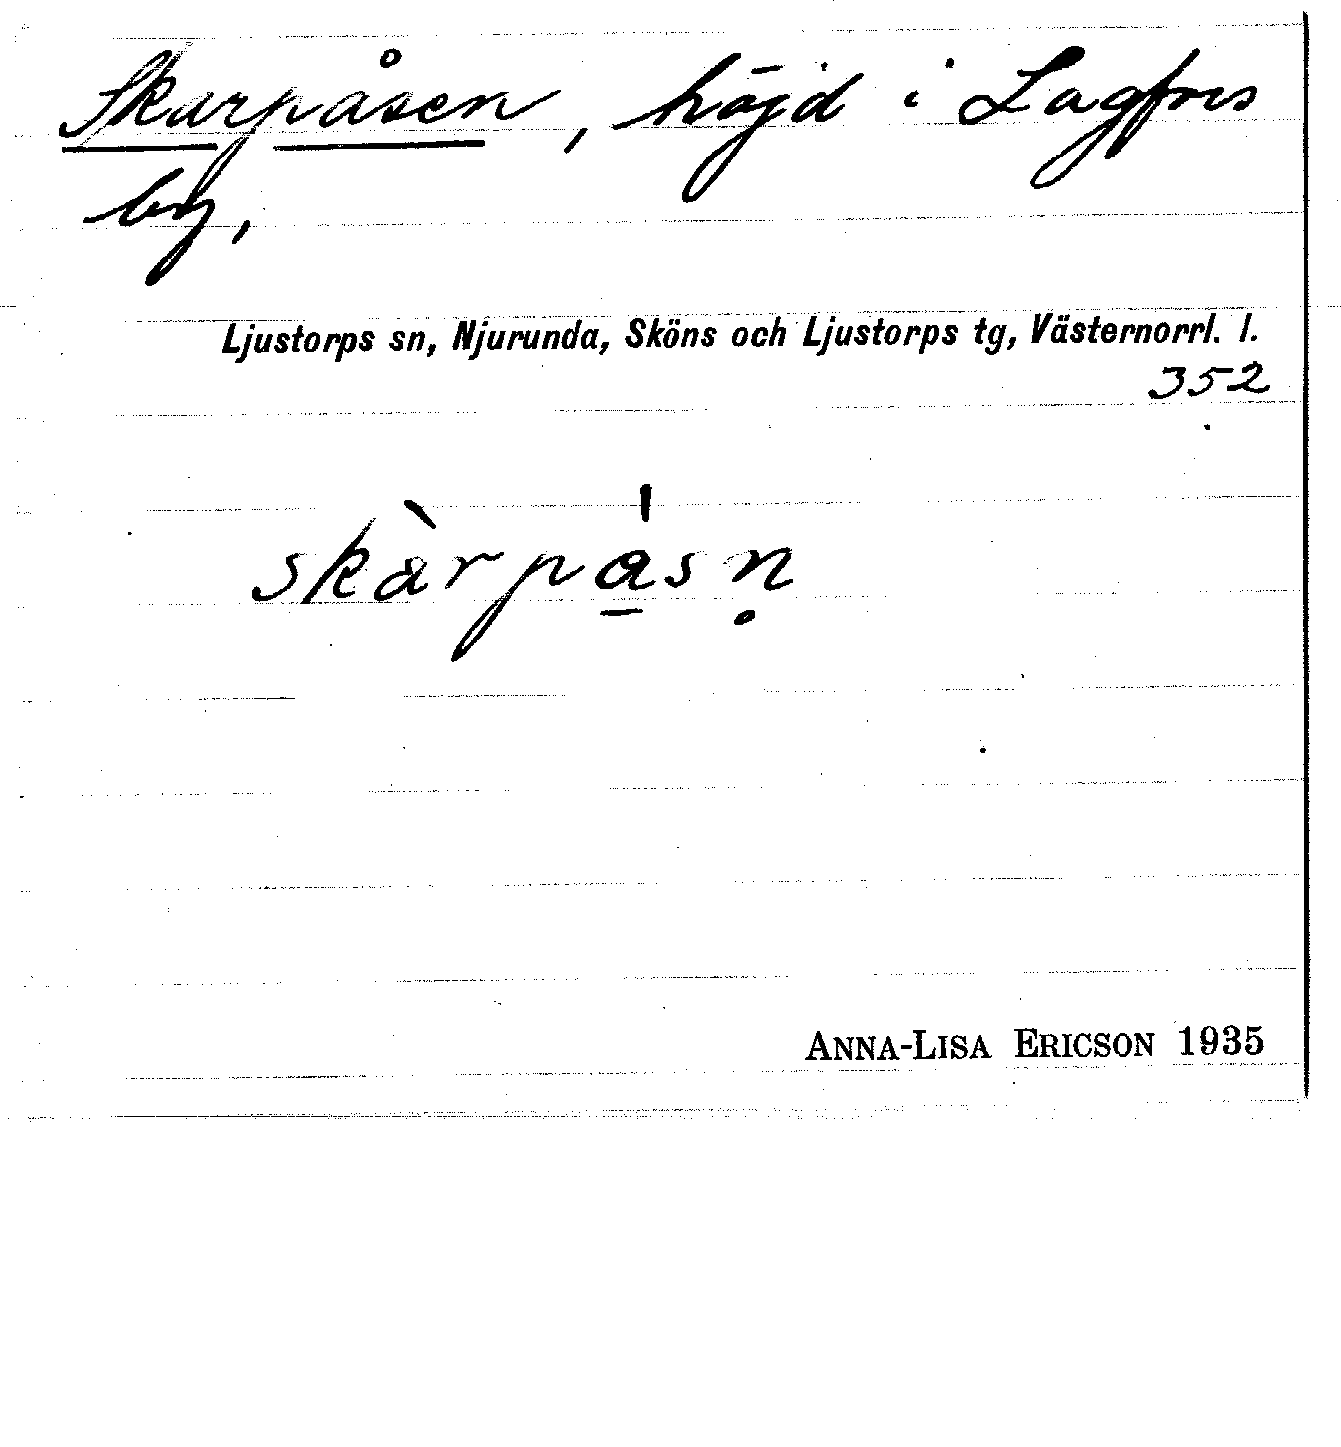 Skarpåsen, höjd i Lagfors
by,
Ljustorps sn, Njurunda, Sköns och Ljustorps tg, Västernorrl. l.
352
skàrpa̱̍sṇ
ANNA-LISA ERICSON 1935